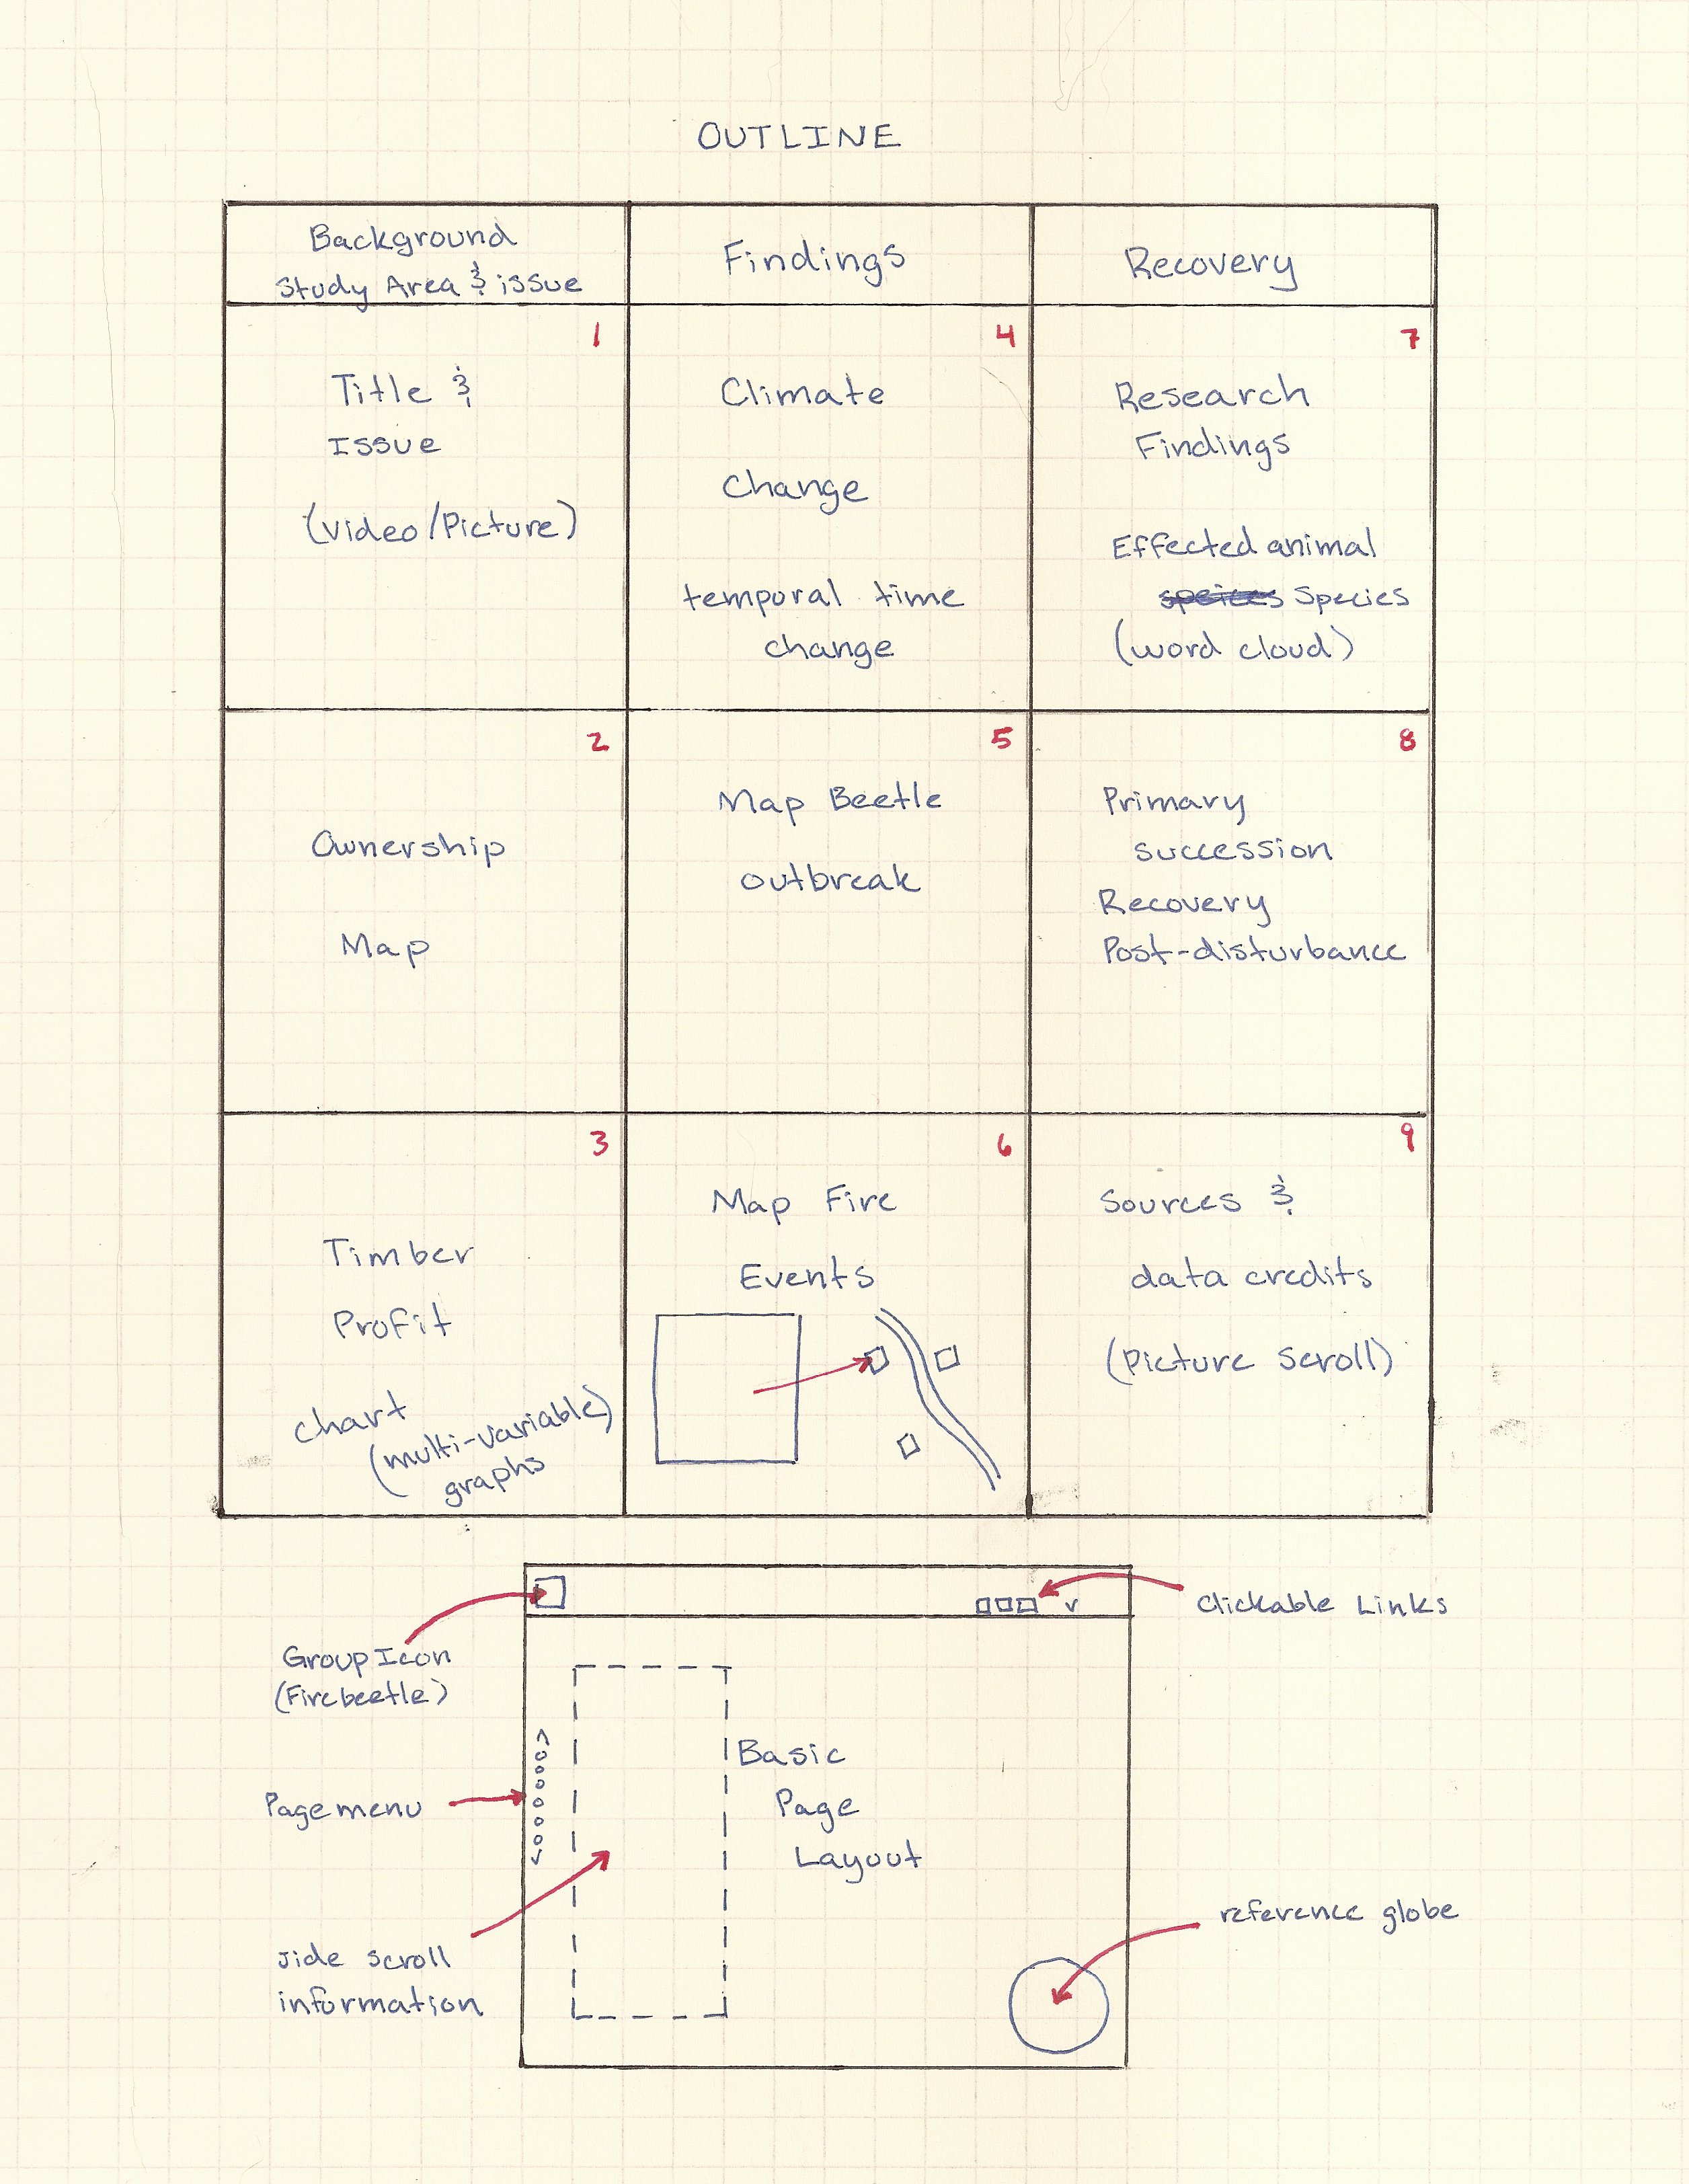 OUTLINE
Background
Study Area & issue
Findings
Recovery
1
Title &
Issue
(video/Picture)
4
Climate
Change
temporal time
change
7
Research
Findings
Effected animal
speices Species
(word cloud)
2
Ownership
Map
5
Map Beetle
outbreak
8
Primary
succession
Recovery
Post-disturbance
3
Timber
Profit
Chart
(multi-variable)
graphs
6
Map Fire
Events
9
Sources &
data credits
(Picture Scroll)
Clickable Links
Group Icon
(Fire beetle)
Basic
Page
Layout
Page menu
reference globe
side scroll
information